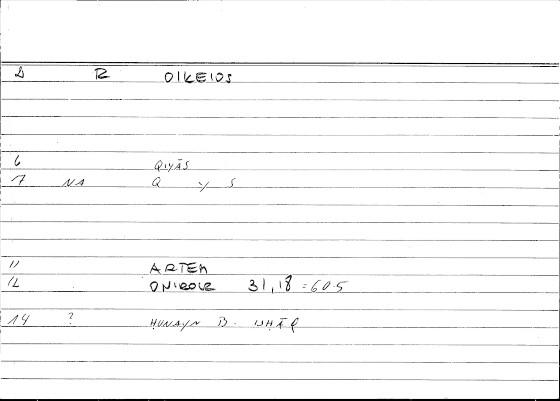 Δ R OIKEIOS
6 QIYĀS
7 NA Q Y S
11 ARTEM
12 ONIROCR 31,18 = 60.5
14 ? HUNAYN B. ISHĀQ